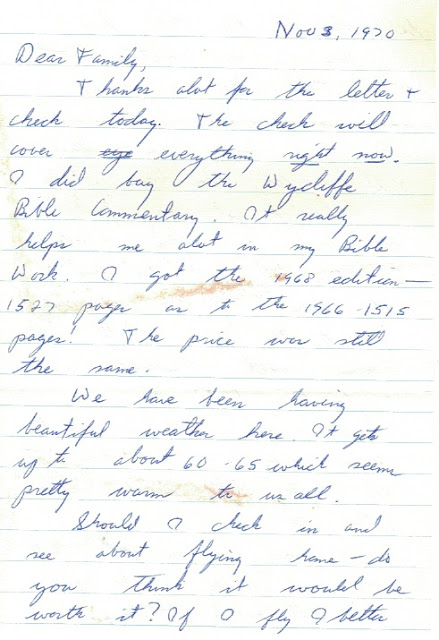 Nov 3, 1970
Dear Family,
Thanks alot for the letter +
check today. The check will
cover eye everything right now.
I did buy the Wycliffe
Bible Commentary. It really
helps me alot in my Bible
Work. I got the 1968 edition—
1527 pages as to the 1966 -1515
pages! The price was still
the same.
We have been having
beautiful weather here. It gets
up to about 60-65 which seems
pretty warm to us all.
Should I check in and
see about flying home — do
you think it would be
worth it? If I fly I better